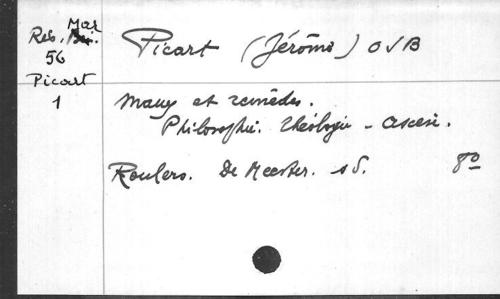 Mar
Res. Picart (Jérôme) OSB
56
Picart
1
Maux et remèdes.
Philosophie. Théologie - Ascèse.
Roulers. De Meester. s d. 8º